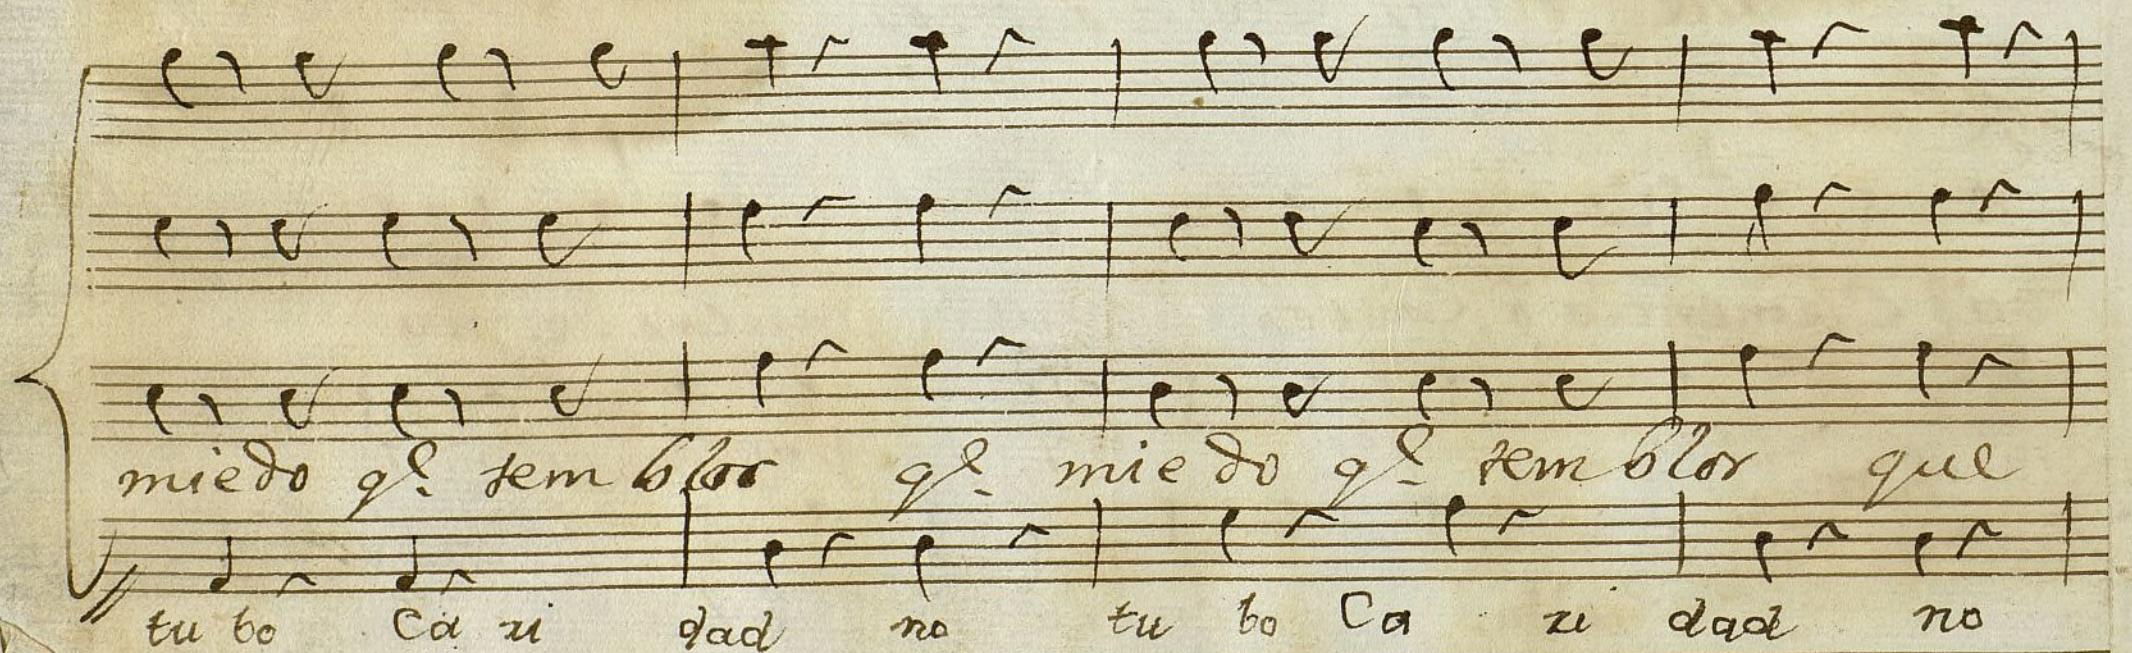 miedo ql. temblor ql. mie do ql. temblor que
tu bo Ca ri dad no tu bo Ca ri dad no